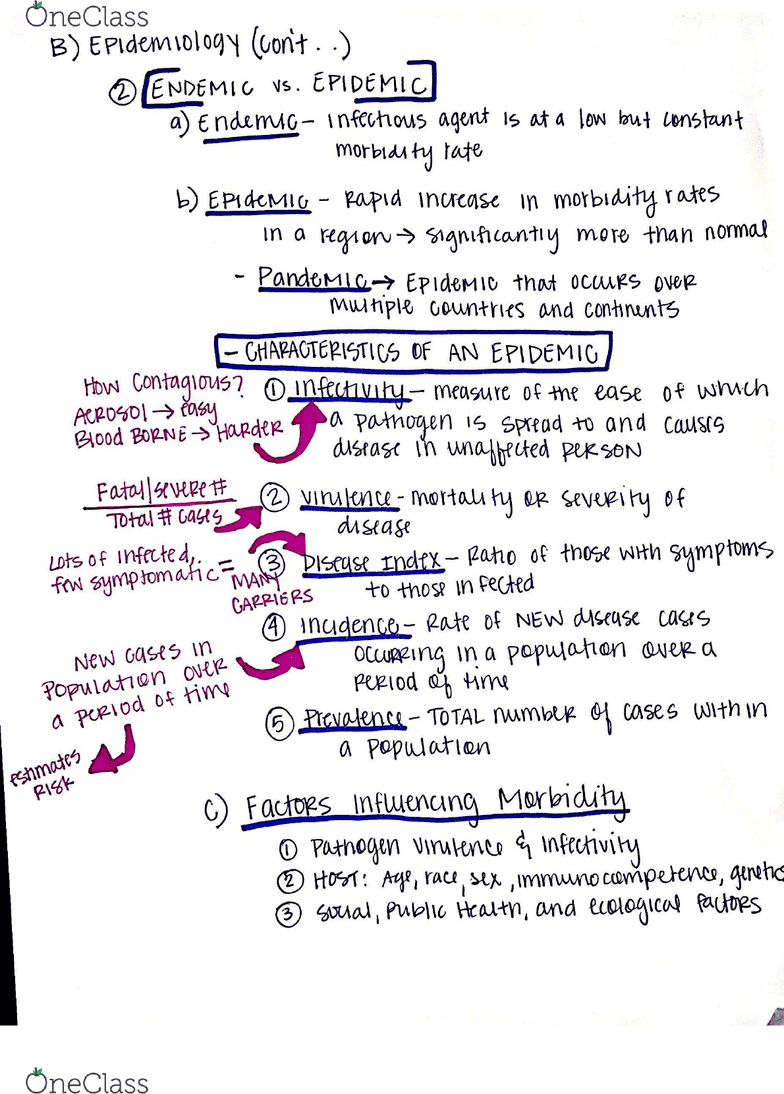 OneClass
B) Epidemiology (con't..)
② ENDEMIC vs. EPIDEMIC
a) Endemic - infectious agent is at a low but constant
morbidity rate
b) Epidemic - Rapid increase in morbidity rates
in a region → significantly more than normal
- Pandemic → Epidemic that occurs over
multiple countries and continents
- CHARACTERISTICS OF AN EPIDEMIC
How Contagious?
Aerosol → easy
Blood BORNE → Harder
① Infectivity - measure of the ease of which
a pathogen is spread to and causes
disease in unaffected person
Fatal/severe #
Total # cases
② Virulence - mortality or severity of
disease
Lots of infected,
few symptomatic =
MANY
CARRIERS
③ Disease Index - Ratio of those with symptoms
to those infected
④ Incidence - Rate of NEW disease cases
occurring in a population over a
period of time
New cases in
population over
a period of time
estmates
Risk
⑤ Prevalence - TOTAL number of cases within
a population
C) Factors Influencing Morbidity
① Pathogen virulence & infectivity
② HOST: Age, race, sex, immunocompetence, genetics
③ Social, Public Health, and ecological factors
OneClass